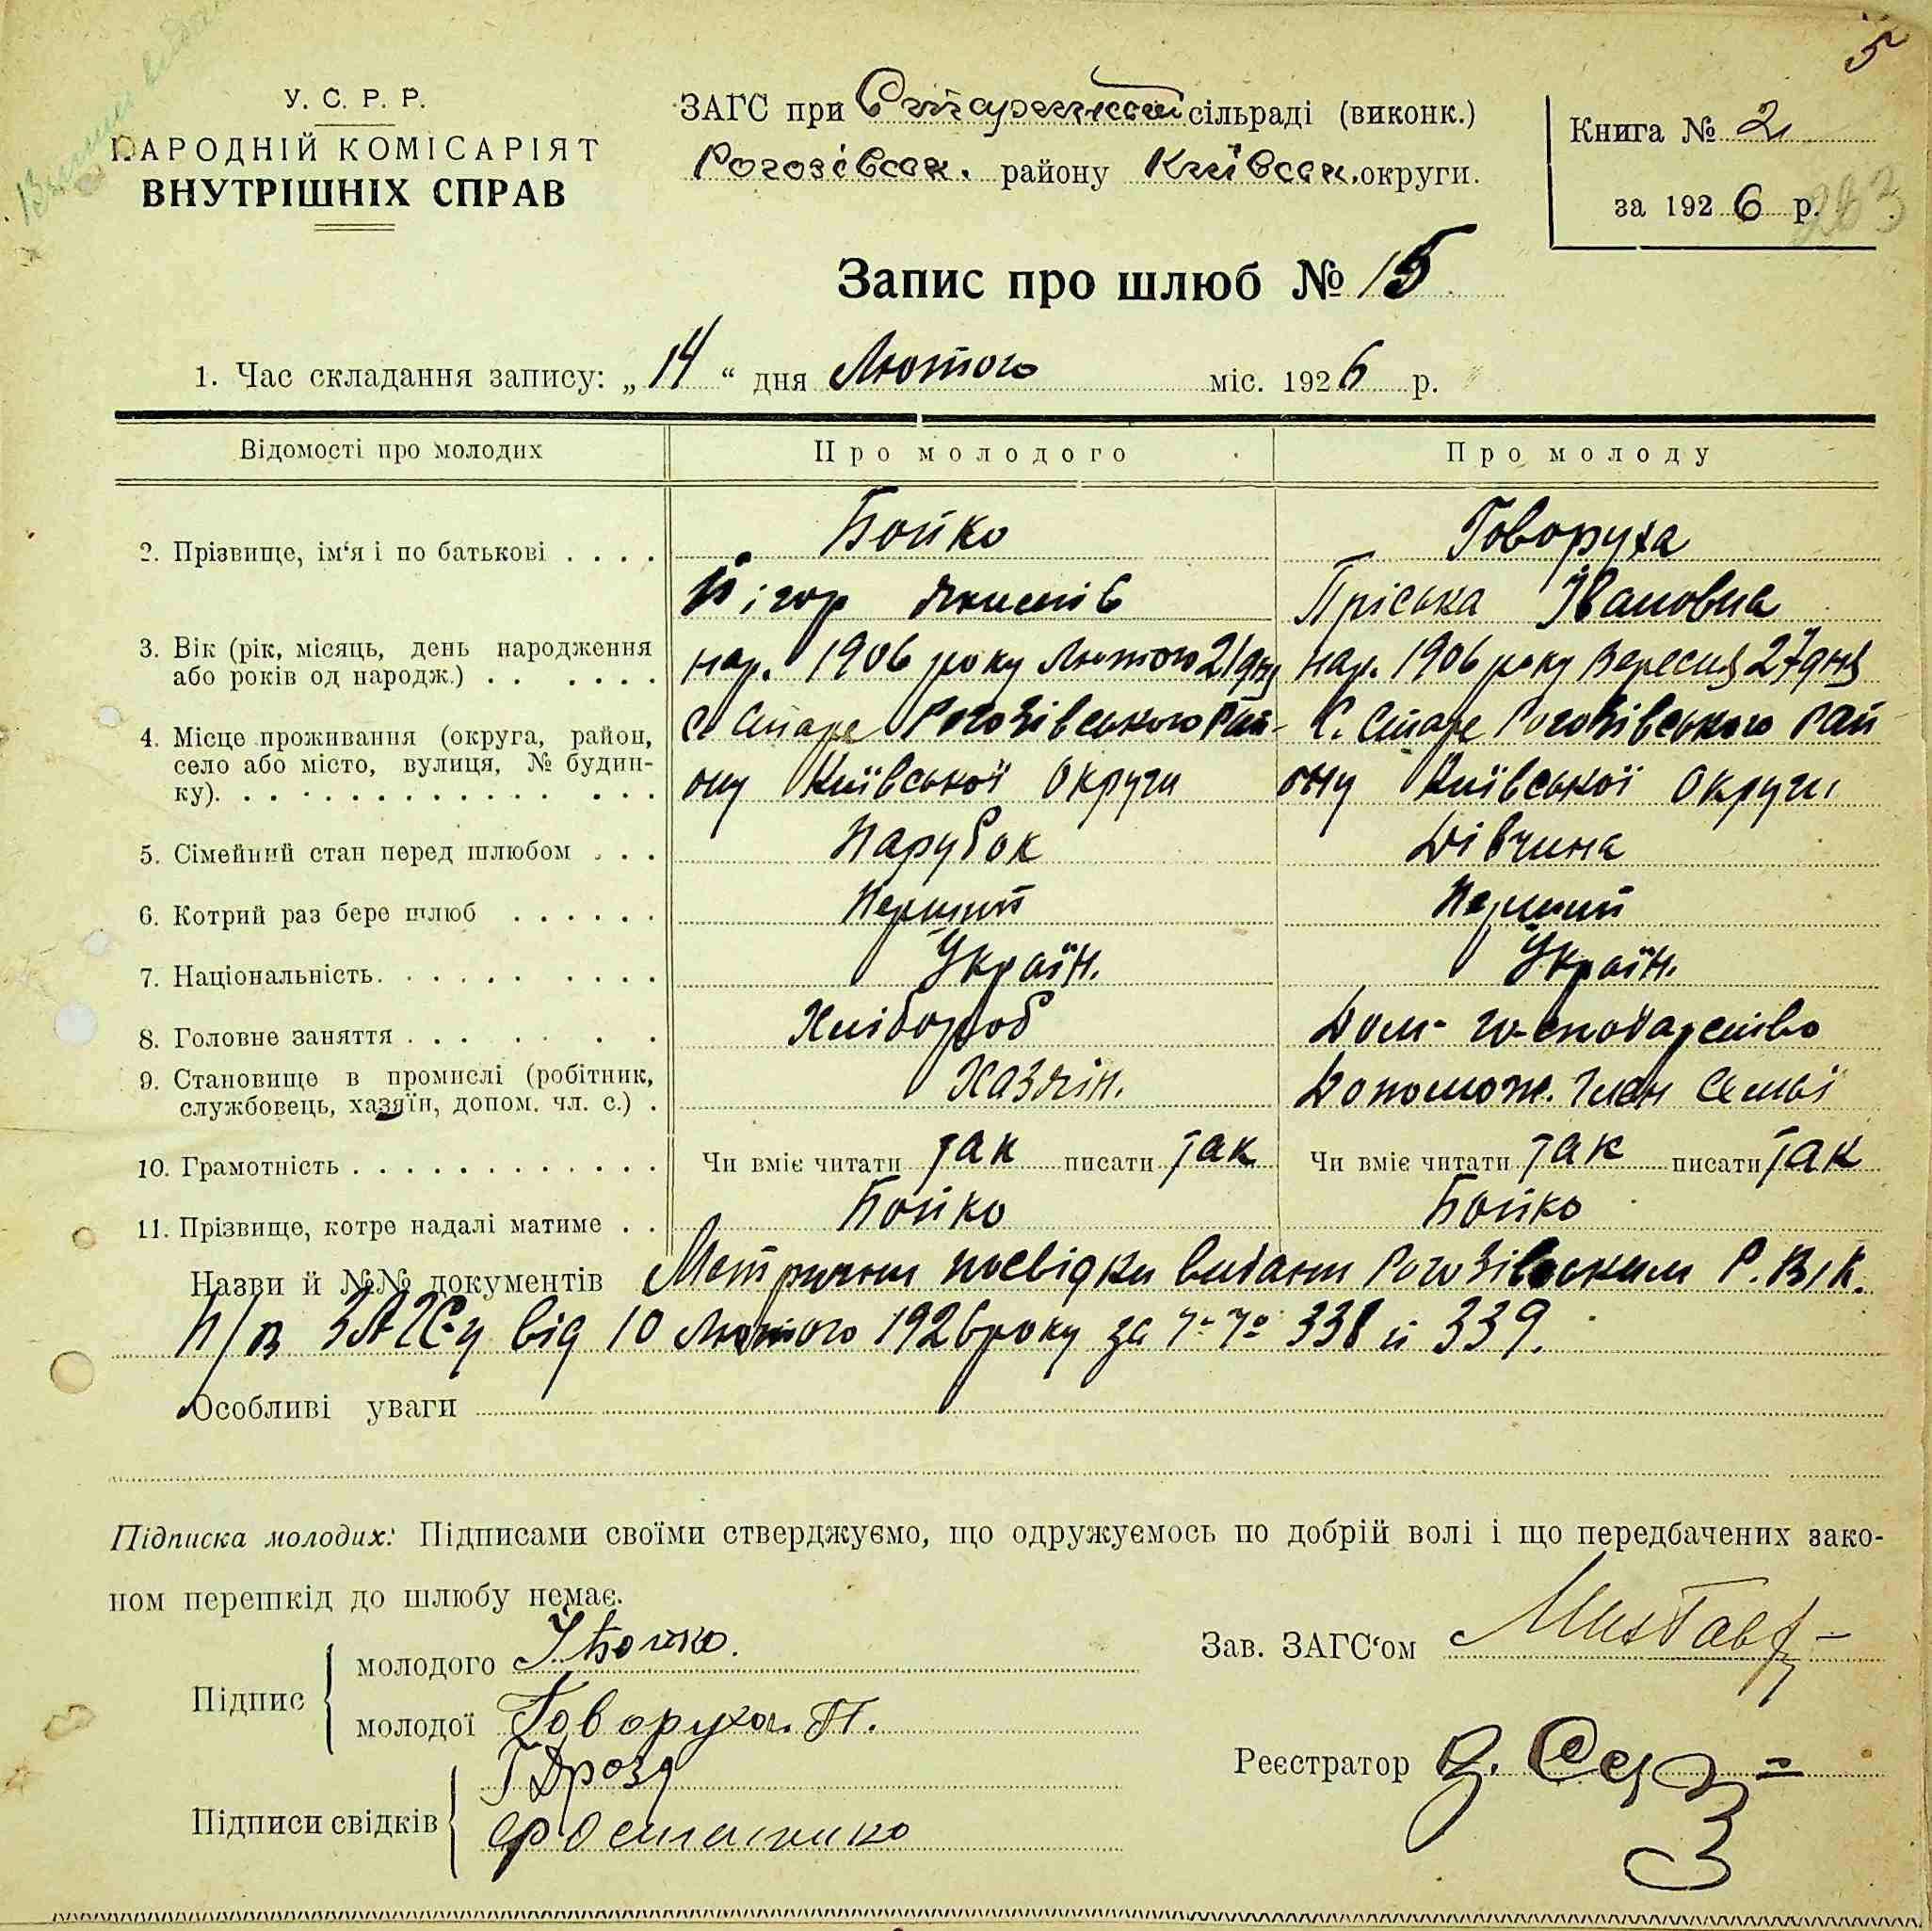 5
У. С. Р. Р.
НАРОДНІЙ КОМІСАРІЯТ
ВНУТРІШНІХ СПРАВ
ЗАГС при Старинській сільраді (виконк.)
Рогозівськ. району Київськ. округи.
Книга № 2
за 1926 р.
263
Запис про шлюб № 15
1. Час складання запису: „14“ дня Лютого міс. 1926 р.
Відомості про молодих Про молодого Про молоду
2. Прізвище, ім‘я і по батькові . . . . Бойко Говоруха
Ігор Пріська Івановна
3. Вік (рік, місяць, день народження нар. 1906 року Лютого 21 дня нар. 1906 року Вересня 27 дня
або років од народж.) . . . . . . .
4. Місце проживання (округа, район, С. Старе Рогозівського Рай- С. Старе Рогозівського Рай
село або місто, вулиця, № будин-
ку). . . . . . . . . . . . . . . . ону Київської Округи ону Київської Округи
5. Сімейний стан перед шлюбом . . . Парубок Дівчина
6. Котрий раз бере шлюб . . . . . . Перший Перший
7. Національність. . . . . . . . . . Україн. Україн.
8. Головне заняття . . . . . . . Хлібороб Дом- господарство
9. Становище в промислі (робітник, Хазяїн. Допомож. член Семьї
службовець, хазяїн, допом. чл. с.) .
10. Грамотність . . . . . . . . . . . . Чи вміє читати так писати так Чи вміє читати так писати так
11. Прізвище, котре надалі матиме . . Бойко Бойко
Назви й №№ документів Метричні посвідки видані Рогозівським Р.В.К.
п/в ЗАГСу від 10 Лютого 1926 року за 338 й 339.
Особливі уваги
Підписка молодих: Підписами своїми стверджуємо, що одружуємось по добрій волі і що передбачених зако-
ном перешкід до шлюбу немає.
Підпис молодого І Бойко.
молодої Говоруха. П.
Підписи свідків Г Дрозд
Зав. ЗАГС‘ом
Реєстратор